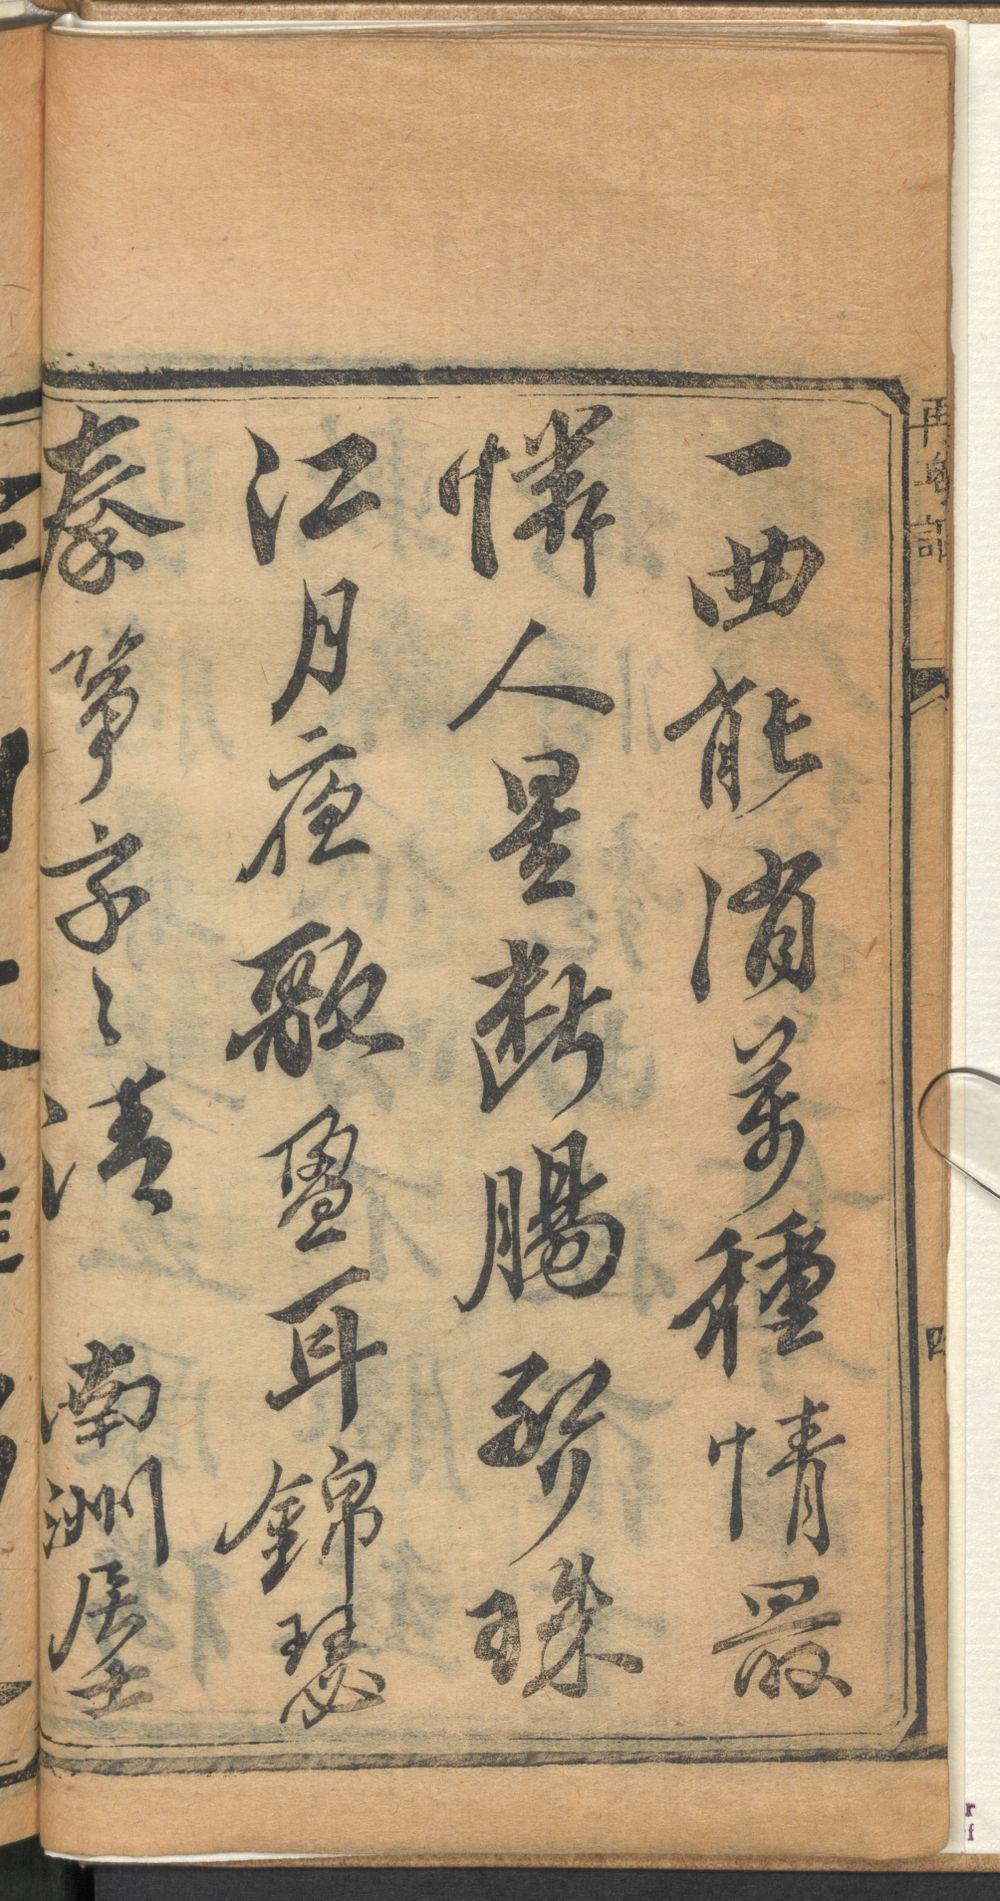 一曲能消萬種情最
憐人是斷腸聲珠
江月夜歌盈耳錦瑟
秦箏字〻清 南洲居士